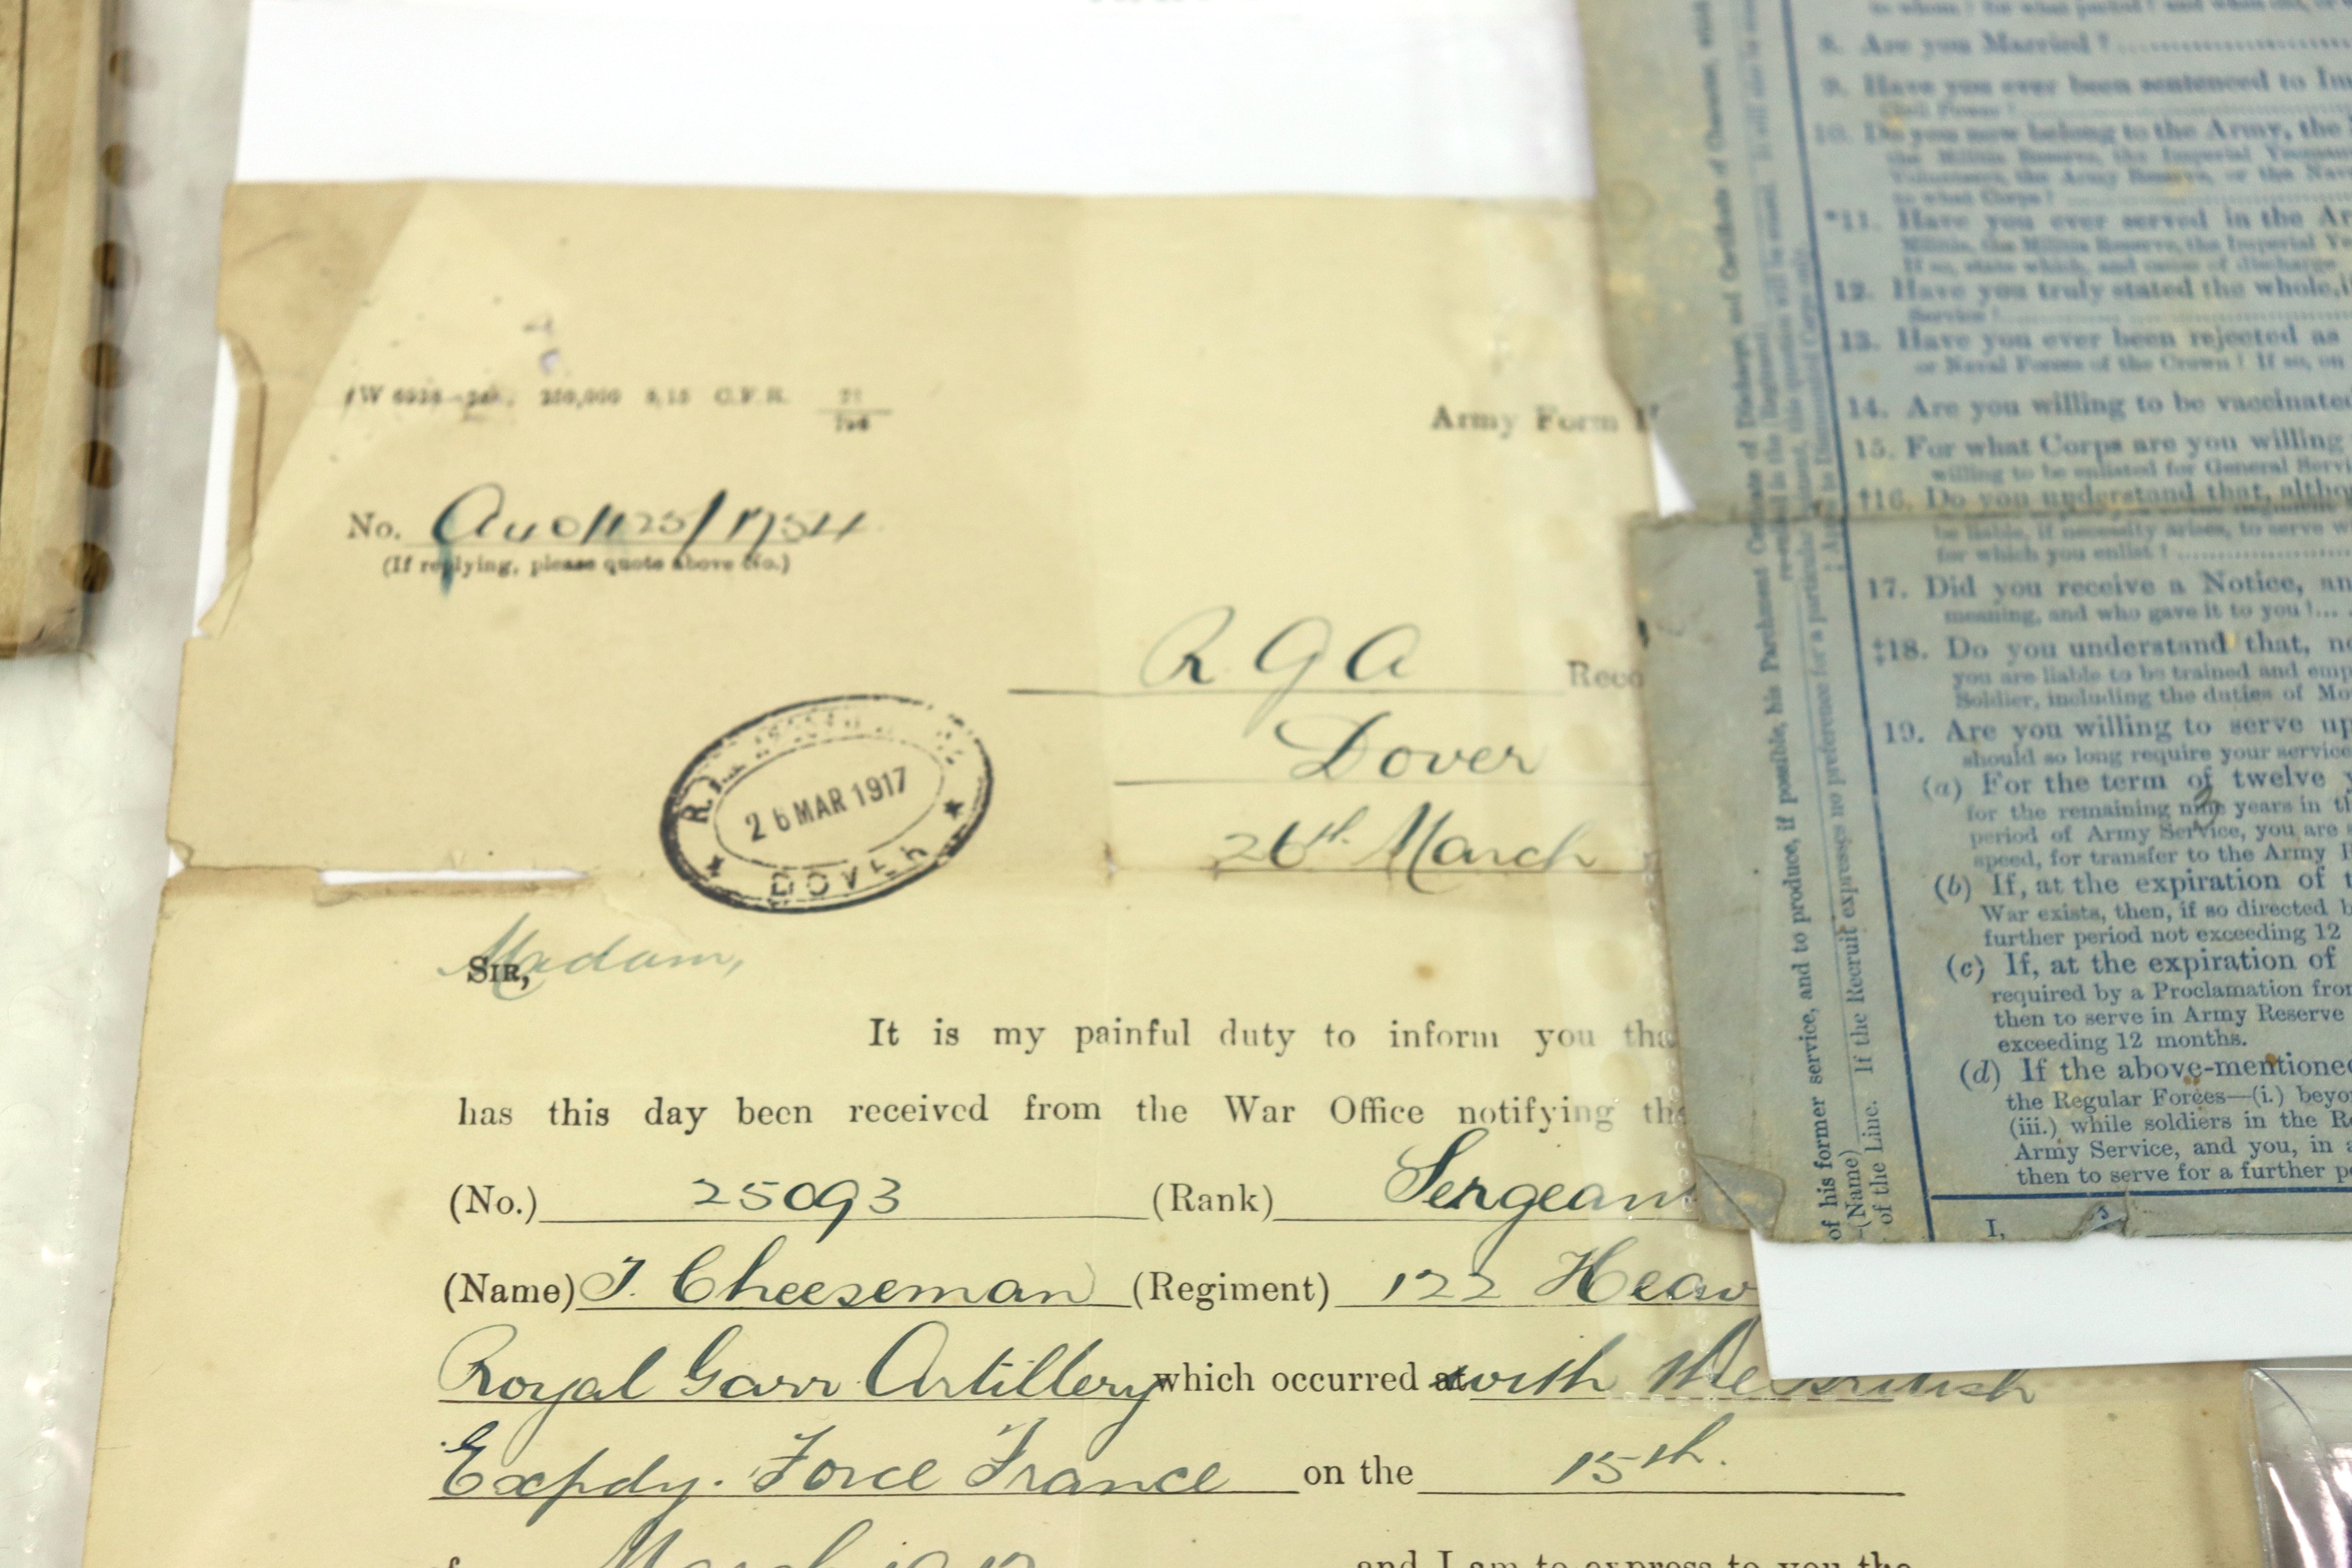 Army Form
No.
(If replying, please quote above No.)
R G A
Dover
26th March
26 MAR 1917
DOVER
SIR,
Madam,
It is my painful duty to inform you tha
has this day been received from the War Office notifying the
(No.) 25093 (Rank) Sergean
(Name) J. Cheeseman (Regiment) 122 Heav
Royal Garr Artillery which occurred at with the British
Expdy. Force France on the 15th.
of March 1917 and I am to express to you the
8. Are you Married ?
9. Have you ever been sentenced to Im
10. Do you now belong to the Army, the
the Militia Reserve, the Imperial Yeoman
Volunteers, the Army Reserve, or the Nav
to what Corps?
*11. Have you ever served in the Ar
Militia, the Militia Reserve, the Imperial Ye
If so, state which, and cause of discharge
12. Have you truly stated the whole, i
Service ?
13. Have you ever been rejected as
or Naval Forces of the Crown ? If so, on
14. Are you willing to be vaccinated
15. For what Corps are you willing
willing to be enlisted for General Servi
†16. Do you understand that, altho
be liable, if necessity arises, to serve
for which you enlist ?
17. Did you receive a Notice, an
meaning, and who gave it to you ?...
‡18. Do you understand that, no
you are liable to be trained and emp
Soldier, including the duties of Mo
19. Are you willing to serve up
should so long require your service
(a) For the term of twelve y
for the remaining nine years in th
period of Army Service, you are
speed, for transfer to the Army R
(b) If, at the expiration of t
War exists, then, if so directed b
further period not exceeding 12
(c) If, at the expiration of
required by a Proclamation from
then to serve in Army Reserve
exceeding 12 months.
(d) If the above-mentioned
the Regular Forces—(i.) beyo
(iii.) while soldiers in the Re
Army Service, and you, in a
then to serve for a further pe
I,
of his former service, and to produce, if possible, his Parchment Certificate of Discharge, and Certificate of Character, which
(Name)
of the Line. If the Recruit expresses no preference for a particular